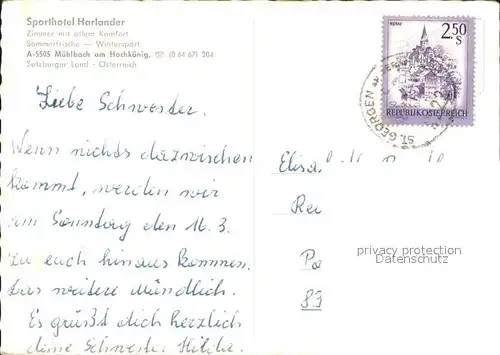 Sporthotel Harlander
Zimmer mit allem Komfort
Sommerfrische — Wintersport
A-5505 Mühlbach am Hochkönig, ☏ (0 64 67) 204
Salzburger Land - Österreich
Liebe Schwester.
Wenn nichts dazwischen
kommt, werden wir
am Sonntag den 16. 3.
zu euch hinaus kommen.
Das weitere Mündlich.
Es grüßt dich herzlich
deine Schwester Hilda.
2.50
S
REPUBLIK ÖSTERREICH
ST. GEORGEN
Elisa
Rei
Po
privacy protection
Datenschutz